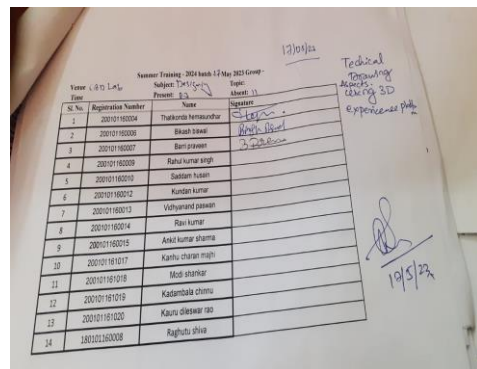 17/05/23
Techical
Summer Training - 2024 batch 17 May 2023 Group -
Venue : CAD Lab Subject: Design Topic: Aspects:
Time Present: 03 Absent: 11 Using 3D
Sl. No. Registration Number Name Signature
experience
1 200101160004 Thatikonda hemasundhar
2 200101160006 Bikash biswal
3 200101160007 Barri praveen
4 200101160009 Rahul kumar singh
5 200101160010 Saddam husain
6 200101160012 Kundan kumar
7 200101160013 Vidhyanand paswan
8 200101160014 Ravi kumar
9 200101160015 Ankit kumar sharma
10 200101161017 Kanhu charan majhi
11 200101161018 Modi shankar
12 200101161019 Kadambala chinnu
13 200101161020 Kauru dileswar rao
14 180101160008 Raghutu shiva
17/5/23